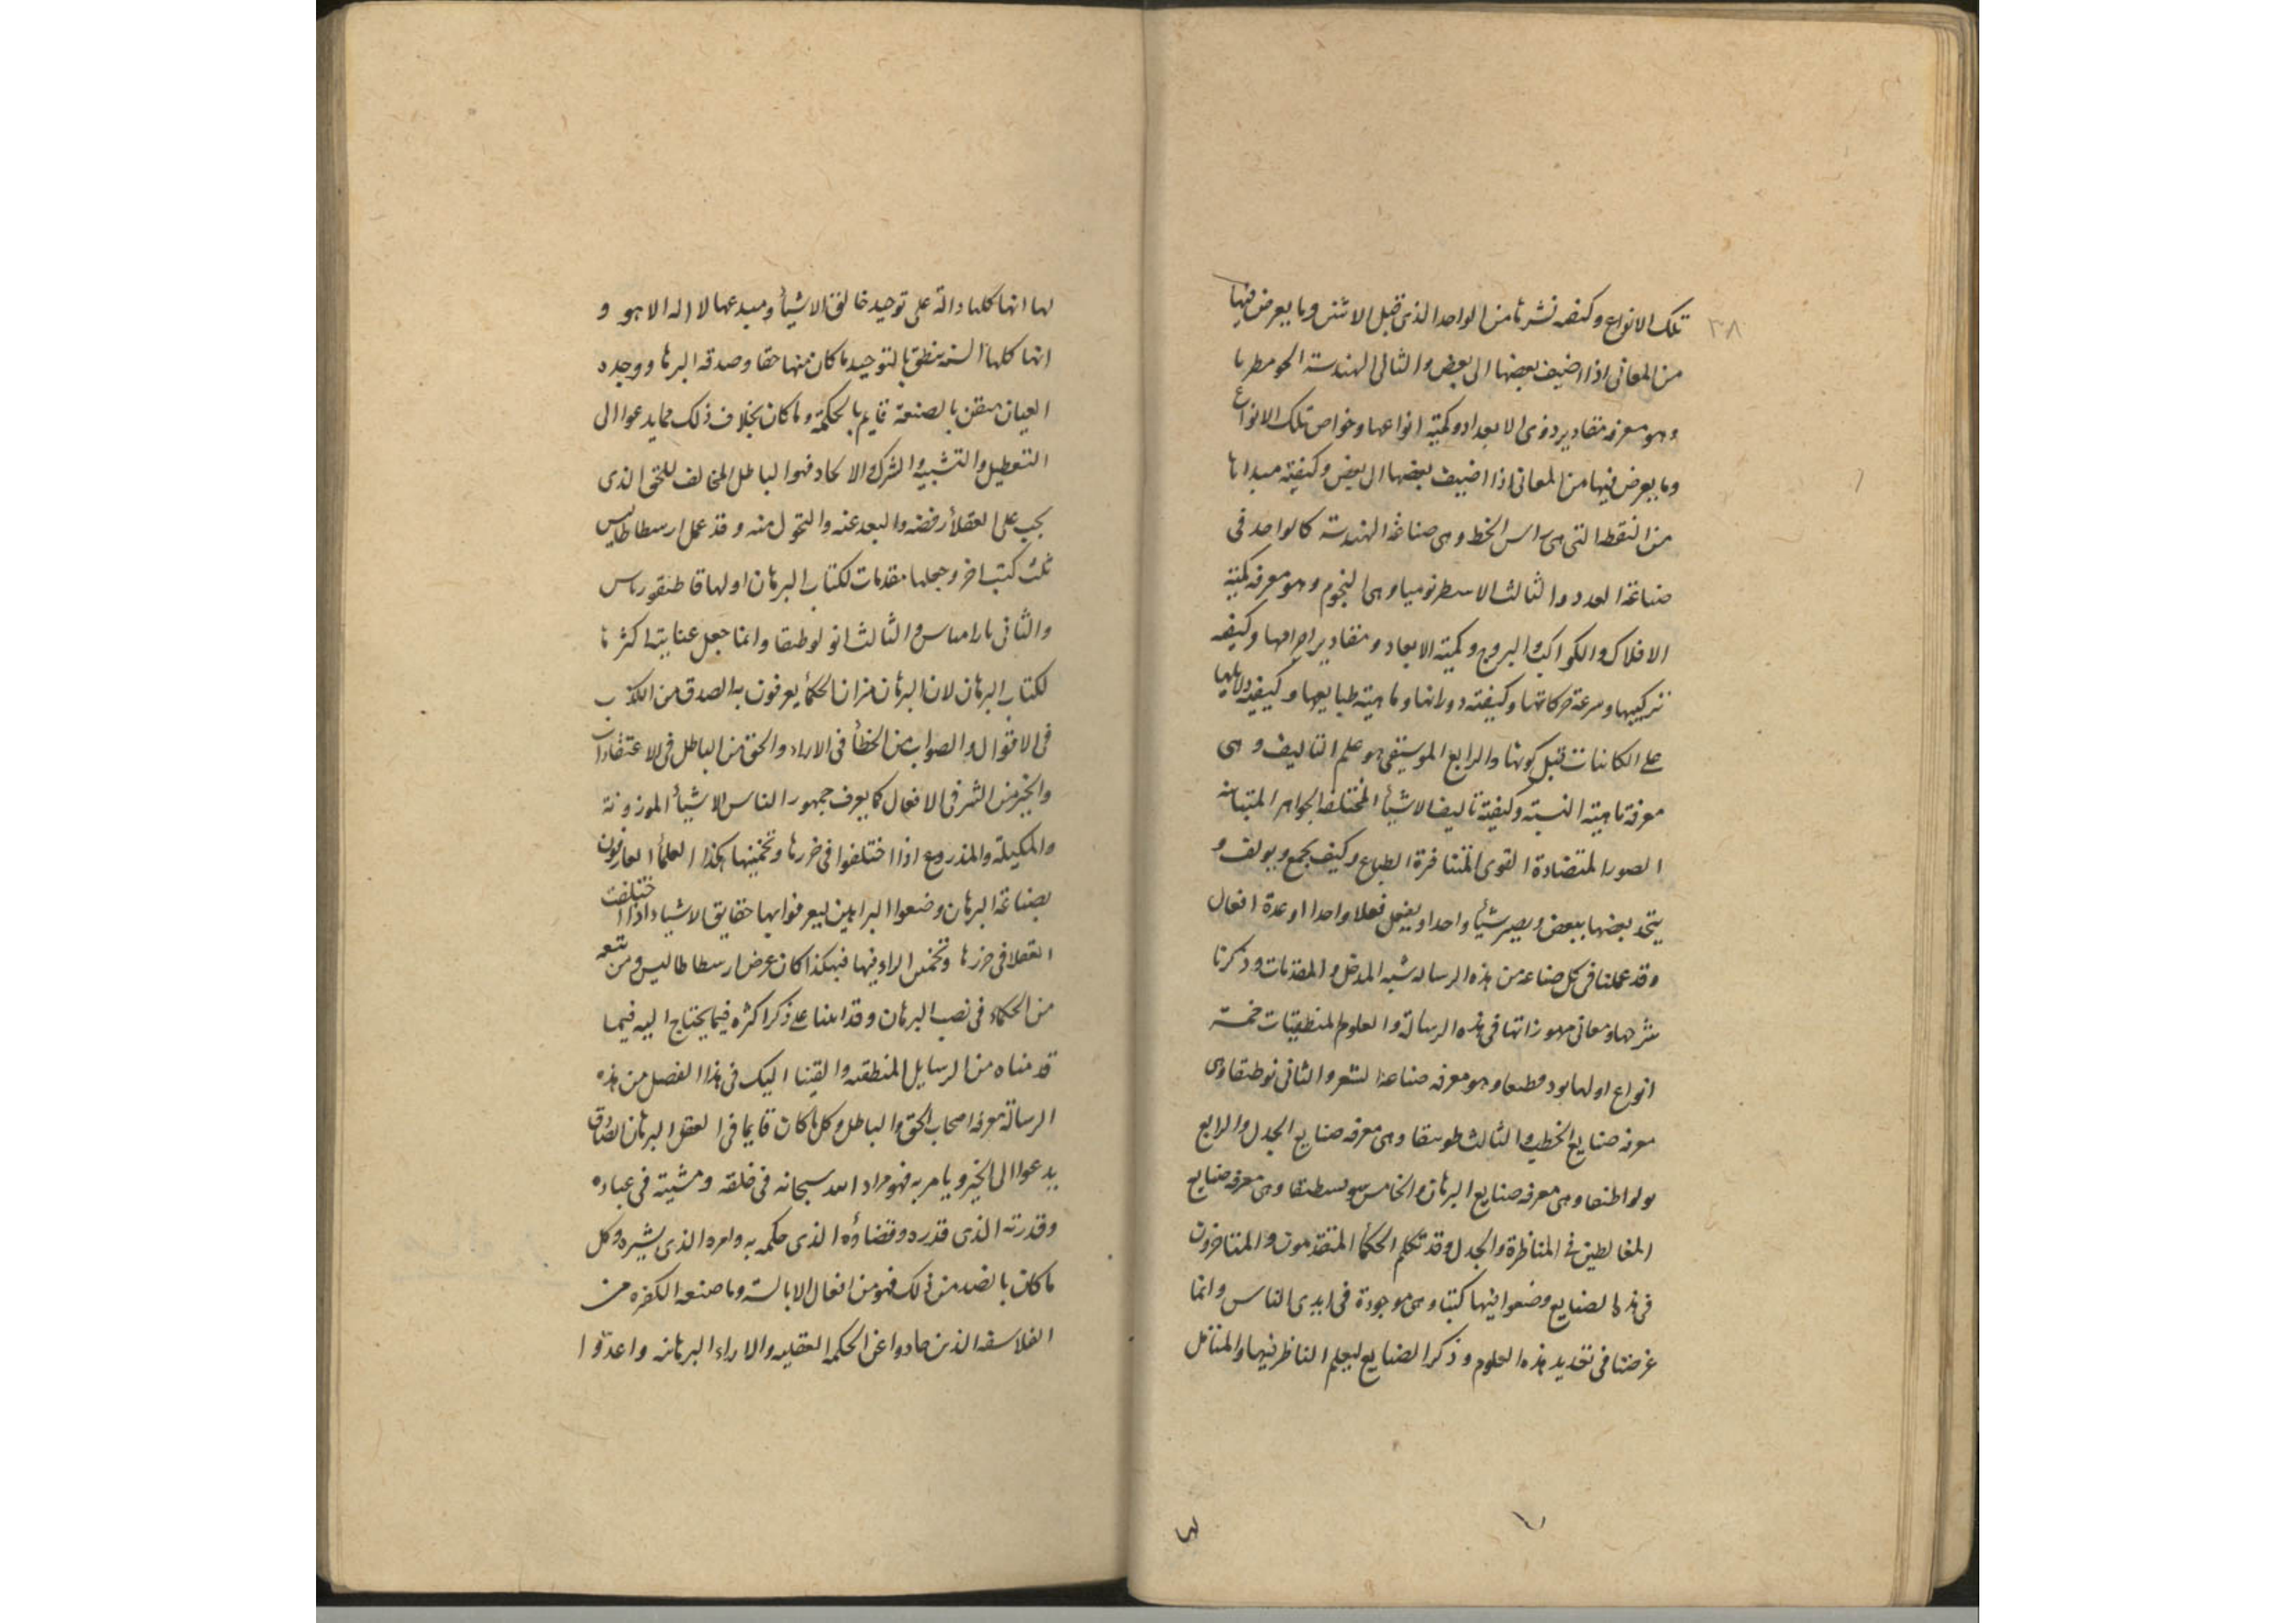 ٣٨
تلك الانواع وكيفيه نشرها من الواحد الذى قبل الاثنين وما يعرض فيها
من المعانى اذا اضيف بعضها الى بعض والثانى الهندسة الجومطريا
وهو معرفه مقادير ذوى الابعاد وكمية انواعها وخواص تلك الانواع
وما يعرض فيها من المعانى اذا اضيف بعضها الى بعض وكيفية مبداها
من النقطه التى هى راس الخط وهى صناعة الهندسة كالواحد فى
صناعة العدد والثالث الاسطرنوميا وهى النجوم وهو معرفه كمية
الافلاك والكواكب والبروج وكمية الابعاد ومقادير اجرامها وكيفيه
تركيبها وسرعة حركاتها وكيفية دورانها وماهية طبايعها وكيفية دلايلها
على الكاينات قبل كونها والرابع الموسيقى هو علم التاليف وهى
معرفة ماهية النسبة وكيفية تاليف الاشيأ المختلفه الجواهر المتباينه
الصور المتضادة القوى المتنافرة الطباع وكيف يجمع ويولف و
يتحد بعضها ببعض ويصير شيأ واحدا ويفعل فعلا واحدا او عدة افعال
وقد عملنا فى كل صناعه من هذه الرساله شبه المدخل والمقدمات وذكرنا
شرحها ومعانى مرموزاتها فى هذه الرسالة والعلوم المنطقيات خمسة
انواع اولها بودقطيقا وهو معرفه صناعة الشعر والثانى نوطيقا وهى
معرفه صنايع الخطب والثالث طوبيقا وهى معرفه صنايع الجدل والرابع
بولوطيقا وهى معرفه صنايع البرهان والخامس سوبسطيقا وهى معرفه صنايع
المغالطين فى المناظرة والجدل وقد تكلم الحكمأ المتقدمون والمتاخرون
فى هذه الصنايع وضعوا فيها كتبا وهى موجودة فى ايدى الناس وانما
غرضنا فى تحديد هذه العلوم وذكر الصنايع ليعلم الناظر فيها والمتامل
لها
لها انها كلها دالة على توحيد خالق الاشيأ ومبدعها لا اله الا هو و
انها كلها السنه ينطق بالتوحيد ما كان منها حقا وصدقه البرهان ووجده
العيان متقن بالصنعة قايم بالحكمة وما كان بخلاف ذلك مما يدعوا الى
التعطيل والتشبيه والشرك والالحاد فهو الباطل المخالف للحق الذى
يجب على العقلأ رفضه والبعد عنه والتحول منه وقد عمل ارسطاطاليس
ثلث كتب اخر وجعلها مقدمات لكتاب البرهان اولها قاطيقورياس
والثانى باراميناس والثالث انولوطيقا وانما جعل عنايته اكثرها
لكتاب البرهان لان البرهان ميزان الحكمأ يعرفون به الصدق من الكذب
فى الاقوال والصواب من الخطأ فى الاراء والحق من الباطل فى الاعتقادات
والخير من الشر فى الافعال كما يعرف جمهور الناس الاشيأ الموزونة
والمكيلة والمذروع اذا اختلفوا فى حزرها وتخمينها هكذا العلمأ العارفون
بصناعة البرهان وضعوا البراهين ليعرفوا بها حقايق الاشياء اذا اختلفت
العقلا فى حزرها وتخمين الراء فيها فهكذا كان غرض ارسطاطاليس ومن تبعه
من الحكماء فى نصب البرهان وقد اتينا على ذكر اكثره فيما يحتاج اليه فيما
قدمناه من الرسايل المنطقيه والقينا اليك فى هذا الفصل من هذه
الرسالة معرفه اصحاب الحق والباطل وكل ما كان قايما فى العقل البرهان الصادق
يدعوا الى الخير ويامر به فهو مراد الله سبحانه فى خلقه ومشيته فى عباده
وقدرته الذى قدره وقضاؤه الذى حكمه به وامره الذى يشيره وكل
ما كان بالضد من ذلك فهو من افعال الابالسة وما صنعه الكفره من
الفلاسفه الذين حادوا عن الحكمه العقليه والاراء البرهانيه واعدوا